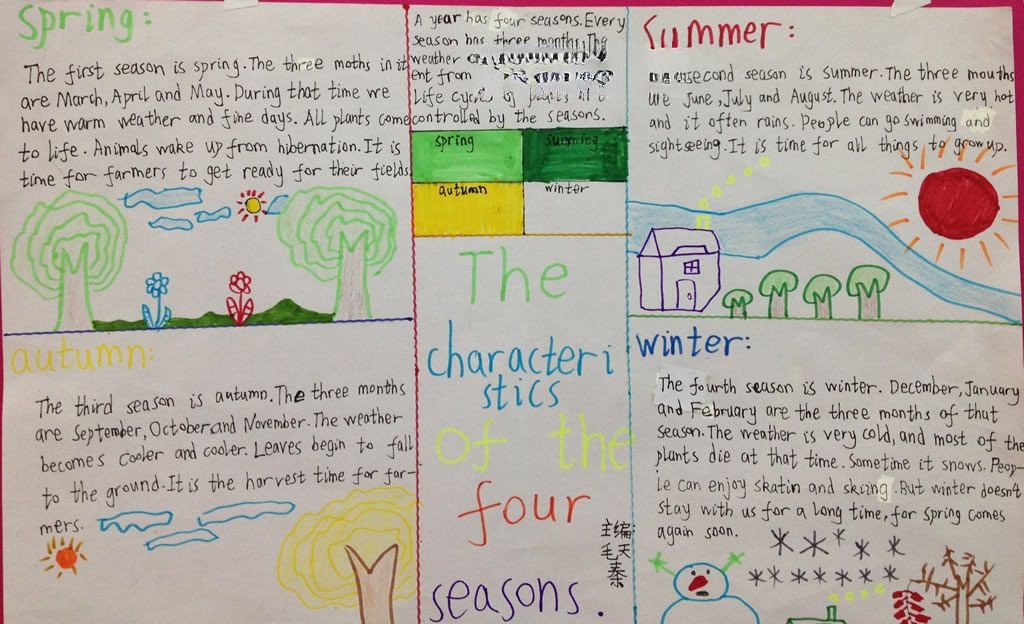 Spring:
The first season is spring. The three moths in it
are March, April and May. During that time we
have warm weather and fine days. All plants come
to life. Animals wake up from hibernation. It is
time for farmers to get ready for their fields.
A year has four seasons. Every
season has three months. The
weather
ent from
Life cycle of plants
controlled by the seasons.
spring
summing
autumn
winter
The
characteri
stics
of the
four
seasons.
主编
毛天
秦
Summer:
second season is summer. The three mouths
are June, July and August. The weather is very hot
and it often rains. People can go swimming and
sightseeing. It is time for all things to grow up.
autumn:
The third season is autumn. The three months
are September, October and November. The weather
becomes cooler and cooler. Leaves begin to fall
to the ground. It is the harvest time for far-
mers.
winter:
The fourth season is winter. December, January
and February are the three months of that
season. The weather is very cold, and most of the
plants die at that time. Sometime it snows. Peop-
le can enjoy skatin and skiing. But winter doesn't
stay with us for a long time, for spring comes
again soon.